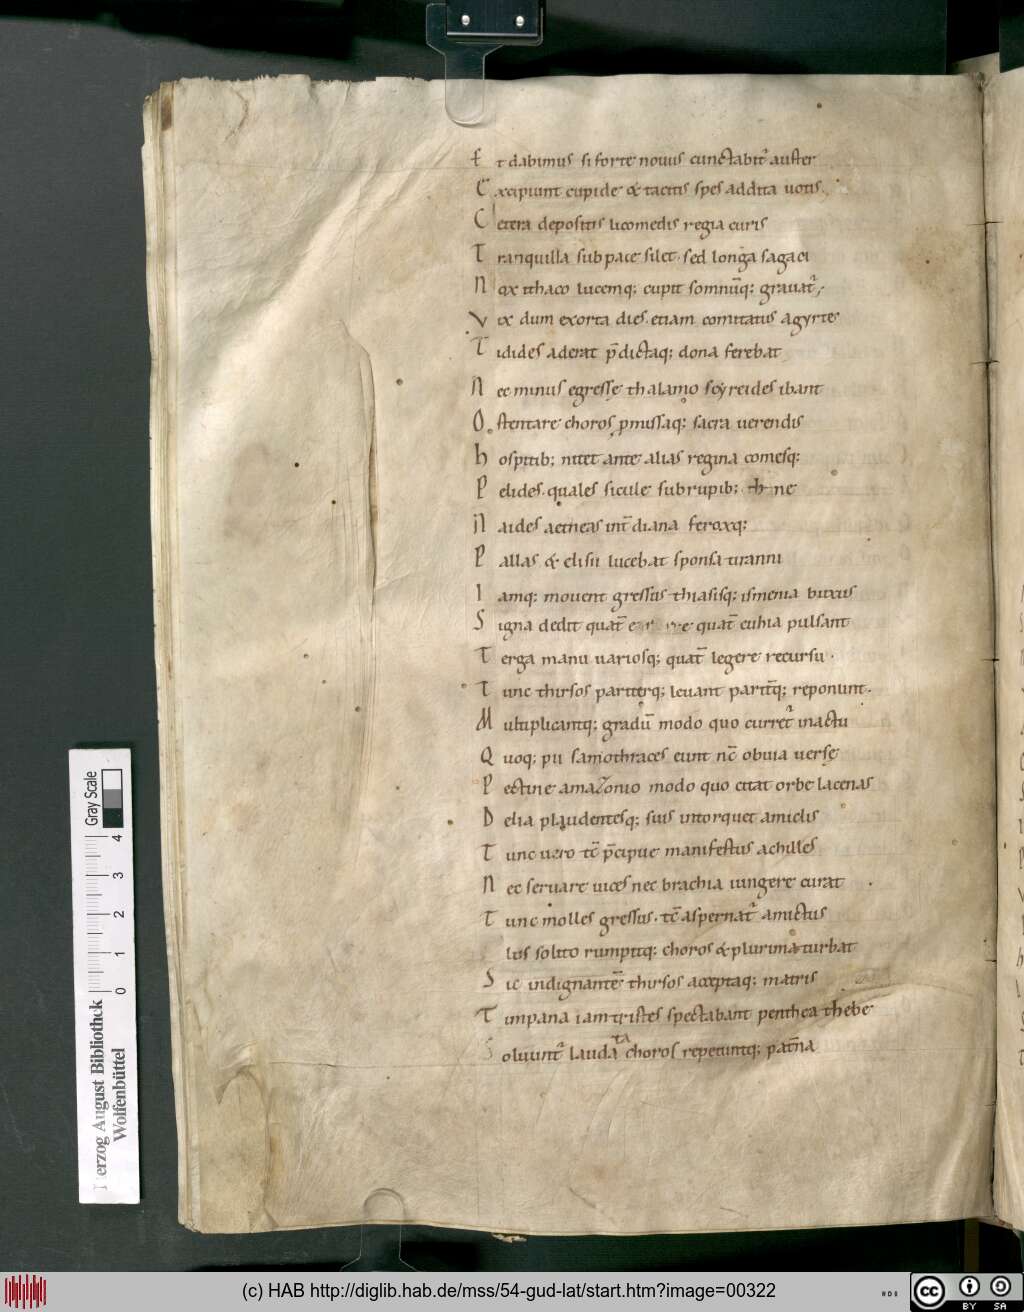 E t dabimus si forte nouus cunctabit᷑ auster
E xcipiunt cupide & tacitis spes addita uotis.
C etera depositis licomedis regia curis
T ranquilla sub pace silet. sed longa sagaci
N ox ithaco lucemq; cupit somnūq; grauat᷑;
V ix dum exorta dies. etiam comitatus agyrtes
T idides aderat p̄dictaq; dona ferebat
N ec minus egressę thalamo scyreides ibant
O stentare choros pmissaq; sacra uerendis
h ospitib; nitet ante alias regina comesq;
P elides. quales sicule sub rupib; ne
N aides aetneas int̄ diana feroxq;
P allas & elisii lucebat sponsa tiranni
I amq; mouent gressus thiasisq; ismenia buxus
S igna dedit quat̄ quat̄ euhia pulsant
T erga manu uariosq; quat̄ legere recursu.
T unc thirsos pariterq; leuant parit̄q; reponunt.
M ultiplicantq; gradū modo quo curret᷑ inactu
Q uoq; pii samothraces eunt nc̄ obuia uersę
P ectine amazonio modo quo citat orbe lacenas
D elia plaudentesq; suis intorquet amiclis
T unc uero tc̄ p̄cipue manifestus achilles
N ec seruare uices nec brachia iungere curat
T unc molles gressus. tc̄ aspernat᷑ amictus
lus solito rumpitq; choros & plurima turbat
S ic indignantē thirsos acceptaq; matris
T impana iam tristes spectabant penthea thebe
S oluunt᷑ laudata choros repetuntq; pat̄na
Gray Scale
0 1 2 3 4
Herzog August Bibliothek
Wolfenbüttel
(c) HAB http://diglib.hab.de/mss/54-gud-lat/start.htm?image=00322
cc
BY SA